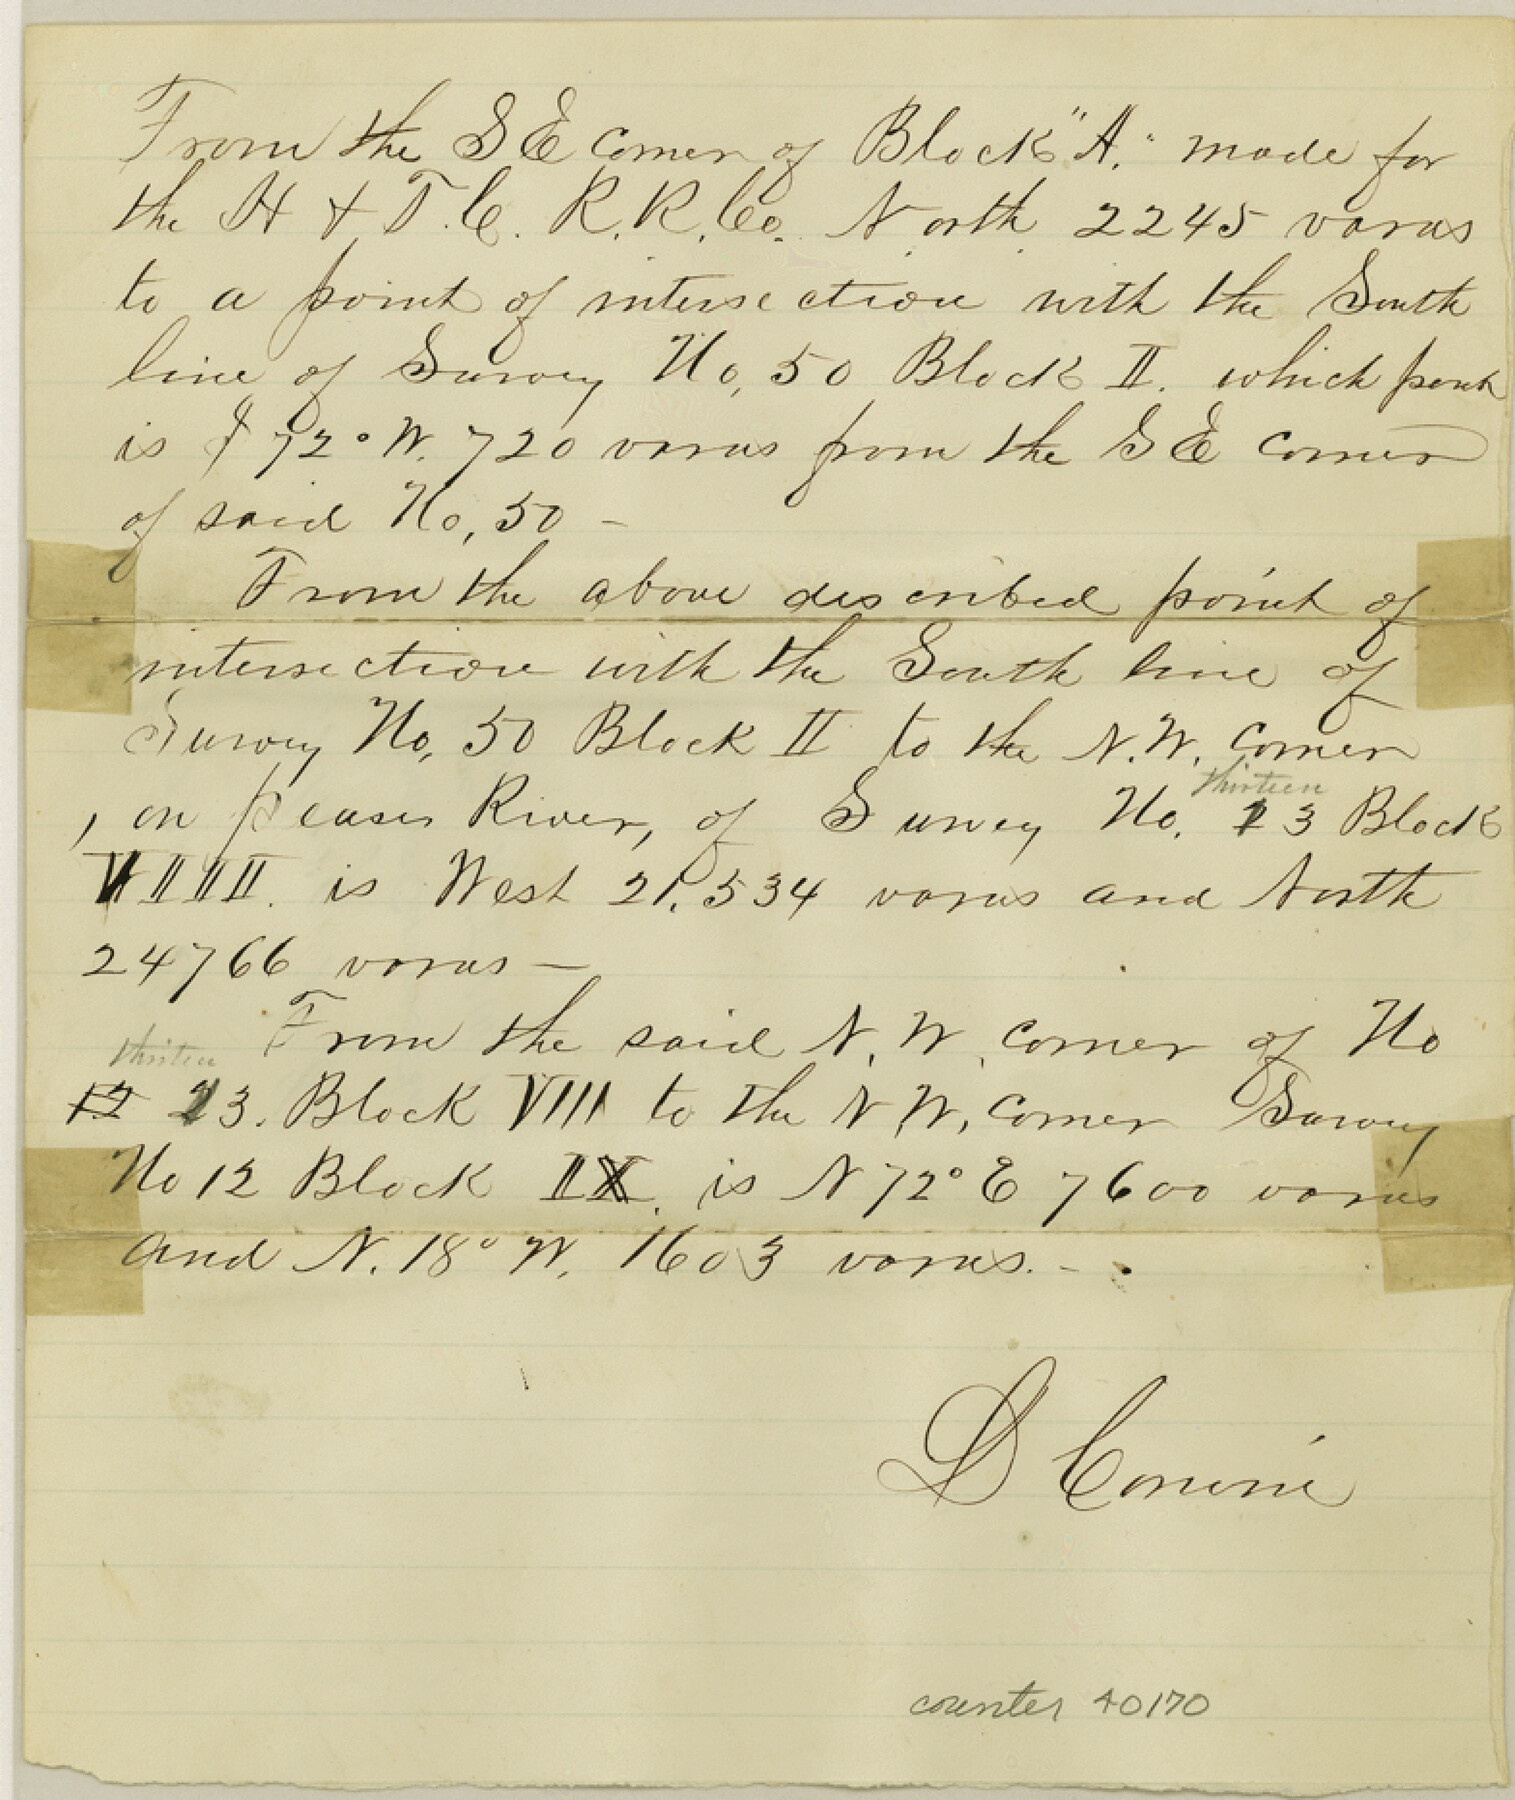 From the SE corner of Block "A." made for
the H & T.C. R.R.Co. North 2245 varas
to a point of intersection with the South
line of Survey No, 50 Block II. which point
is S 72° W. 720 varas from the SE corner
of said No, 50 -
From the above described point of
intersection with the South line of
Survey No, 50 Block II to the N.W. corner
thirteen
, on peases River, of Survey No. 13 Block
VIII. is West 21,534 varas and North
24766 varas -
From the said N. W. corner of No
thirteen
12 13. Block VIII to the N.W. corner Survey
No 12 Block IX. is N 72° E 7600 varas
and N. 18° W. 1603 varas. -
counter 40170